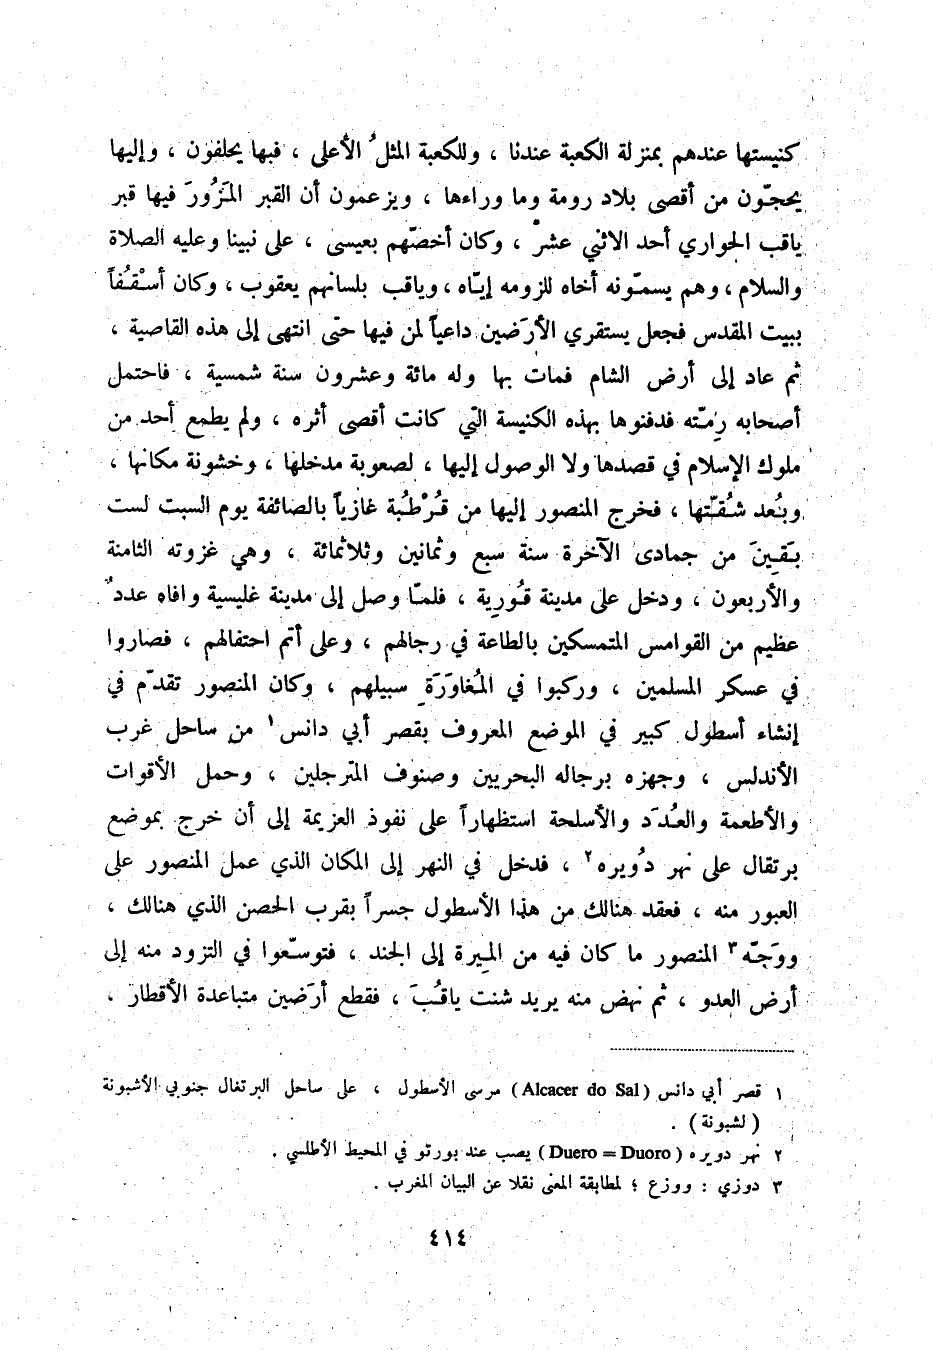 كنيستها عندهم بمنزلة الكعبة عندنا ، وللكعبة المثلُ الأعلى ، فبها يحلفون ، وإليها
يحجّون من أقصى بلاد رومة وما وراءها ، ويزعمون أن القبر المَزُورَ فيها قبر
ياقب الحواري أحد الاثني عشر ، وكان أخصّهم بعيسى ، على نبينا وعليه الصلاة
والسلام ، وهم يسمّونه أخاه للزومه إيّاه ، وياقب بلسانهم يعقوب ، وكان أسْقُفاً
ببيت المقدس فجعل يستقري الأرَضين داعياً لمن فيها حتى انتهى إلى هذه القاصية ،
ثم عاد إلى أرض الشام فمات بها وله مائة وعشرون سنة شمسية ، فاحتمل
أصحابه رِمّته فدفنوها بهذه الكنيسة التي كانت أقصى أثره ، ولم يطمع أحد من
ملوك الإسلام في قصدها ولا الوصول إليها ، لصعوبة مدخلها ، وخشونة مكانها ،
وبُعد شُقّتها ، فخرج المنصور إليها من قُرْطُبة غازياً بالصائفة يوم السبت لست
بَقِينَ من جمادى الآخرة سنة سبع وثمانين وثلاثمائة ، وهي غزوته الثامنة
والأربعون ، ودخل على مدينة قُورِية ، فلمّا وصل إلى مدينة غليسية وافاه عددٌ
عظيم من القوامس المتمسكين بالطاعة في رجالهم ، وعلى أتم احتفالهم ، فصاروا
في عسكر المسلمين ، وركبوا في المُغاوَرَةِ سبيلهم ، وكان المنصور تقدّم في
إنشاء أسطول كبير في الموضع المعروف بقصر أبي دانس١ من ساحل غرب
الأندلس ، وجهزه برجاله البحريين وصنوف المترجلين ، وحمل الأقوات
والأطعمة والعُدَد والأسلحة استظهاراً على نفوذ العزيمة إلى أن خرج بموضع
برتقال على نهر دُويره٢ ، فدخل في النهر إلى المكان الذي عمل المنصور على
العبور منه ، فعقد هنالك من هذا الأسطول جسراً بقرب الحصن الذي هنالك ،
ووَجّه٣ المنصور ما كان فيه من المِيرة إلى الجند ، فتوسّعوا في التزود منه إلى
أرض العدو ، ثم نهض منه يريد شنت ياقُبَ ، فقطع أرَضين متباعدة الأقطار ،
١ قصر أبي دانس (Alcacer do Sal) مرسى الأسطول ، على ساحل البرتغال جنوبي الأشبونة
(لشبونة) .
٢ نهر دويره (Duero = Duoro) يصب عند بورتو في المحيط الأطلسي .
٣ دوزي : ووزع ؛ لمطابقة المعنى نقلا عن البيان المغرب .
٤١٤